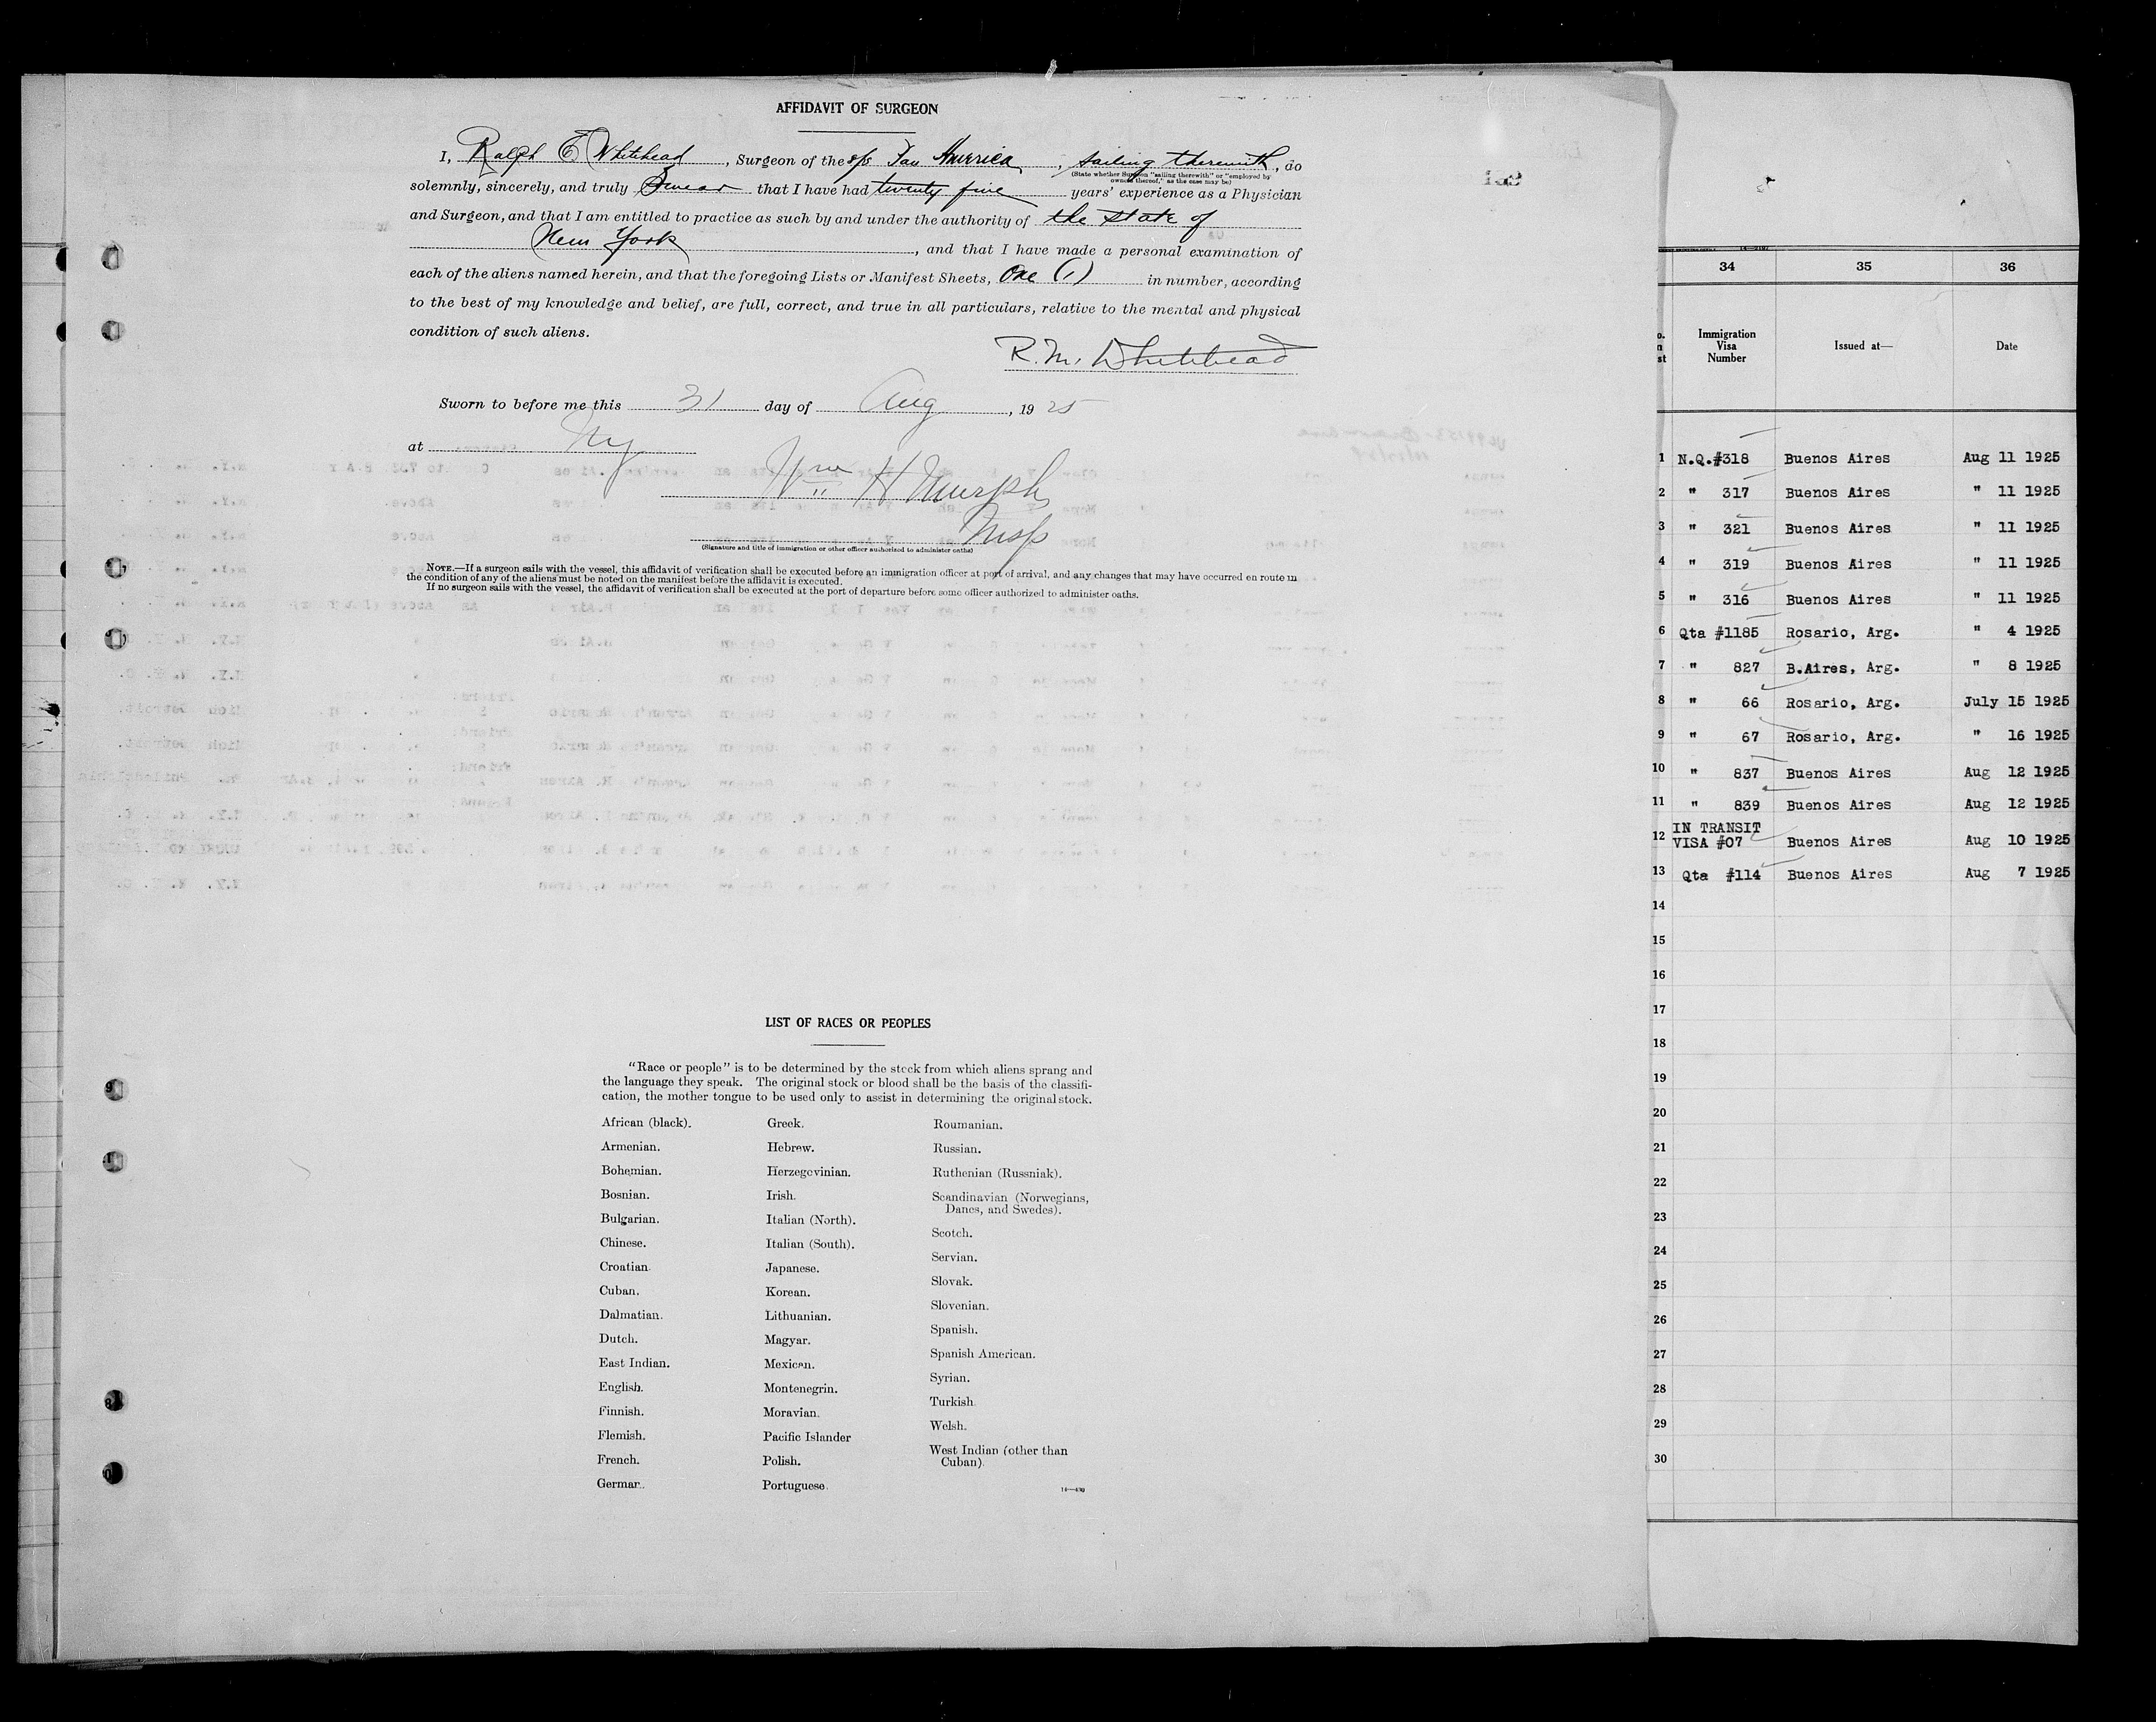 AFFIDAVIT OF SURGEON
I, Ralph E Whitehead, Surgeon of the s/s Pan America, sailing therewith, do
(State whether Surgeon "sailing therewith" or "employed by
owners thereof," as the case may be)
solemnly, sincerely, and truly Swear that I have had twenty five years' experience as a Physician
and Surgeon, and that I am entitled to practice as such by and under the authority of the State of
New York, and that I have made a personal examination of
each of the aliens named herein, and that the foregoing Lists or Manifest Sheets, One (1) in number, according
to the best of my knowledge and belief, are full, correct, and true in all particulars, relative to the mental and physical
condition of such aliens.
R. M. Whitehead
Sworn to before me this 31 day of Aug, 1925
at NY
Wm H Murphy
Insp
(Signature and title of immigration or other officer authorized to administer oaths)
NOTE.—If a surgeon sails with the vessel, this affidavit of verification shall be executed before an immigration officer at port of arrival, and any changes that may have occurred en route in
the condition of any of the aliens must be noted on the manifest before the affidavit is executed.
If no surgeon sails with the vessel, the affidavit of verification shall be executed at the port of departure before some officer authorized to administer oaths.
LIST OF RACES OR PEOPLES
"Race or people" is to be determined by the stock from which aliens sprang and
the language they speak. The original stock or blood shall be the basis of the classifi-
cation, the mother tongue to be used only to assist in determining the original stock.
African (black).
Armenian.
Bohemian.
Bosnian.
Bulgarian.
Chinese.
Croatian.
Cuban.
Dalmatian.
Dutch.
East Indian.
English.
Finnish.
Flemish.
French.
German.
Greek.
Hebrew.
Herzegovinian.
Irish.
Italian (North).
Italian (South).
Japanese.
Korean.
Lithuanian.
Magyar.
Mexican.
Montenegrin.
Moravian.
Pacific Islander
Polish.
Portuguese.
Roumanian.
Russian.
Ruthenian (Russniak).
Scandinavian (Norwegians,
Danes, and Swedes).
Scotch.
Servian.
Slovak.
Slovenian.
Spanish.
Spanish American.
Syrian.
Turkish.
Welsh.
West Indian (other than
Cuban).
34 35 36
Immigration Visa Number Issued at— Date
1 N.Q.#318 Buenos Aires Aug 11 1925
2 " 317 Buenos Aires " 11 1925
3 " 321 Buenos Aires " 11 1925
4 " 319 Buenos Aires " 11 1925
5 " 316 Buenos Aires " 11 1925
6 Qta #1185 Rosario, Arg. " 4 1925
7 " 827 B.Aires, Arg. " 8 1925
8 " 66 Rosario, Arg. July 15 1925
9 " 67 Rosario, Arg. " 16 1925
10 " 837 Buenos Aires Aug 12 1925
11 " 839 Buenos Aires Aug 12 1925
12 IN TRANSIT
VISA #07 Buenos Aires Aug 10 1925
13 Qta #114 Buenos Aires Aug 7 1925
14
15
16
17
18
19
20
21
22
23
24
25
26
27
28
29
30